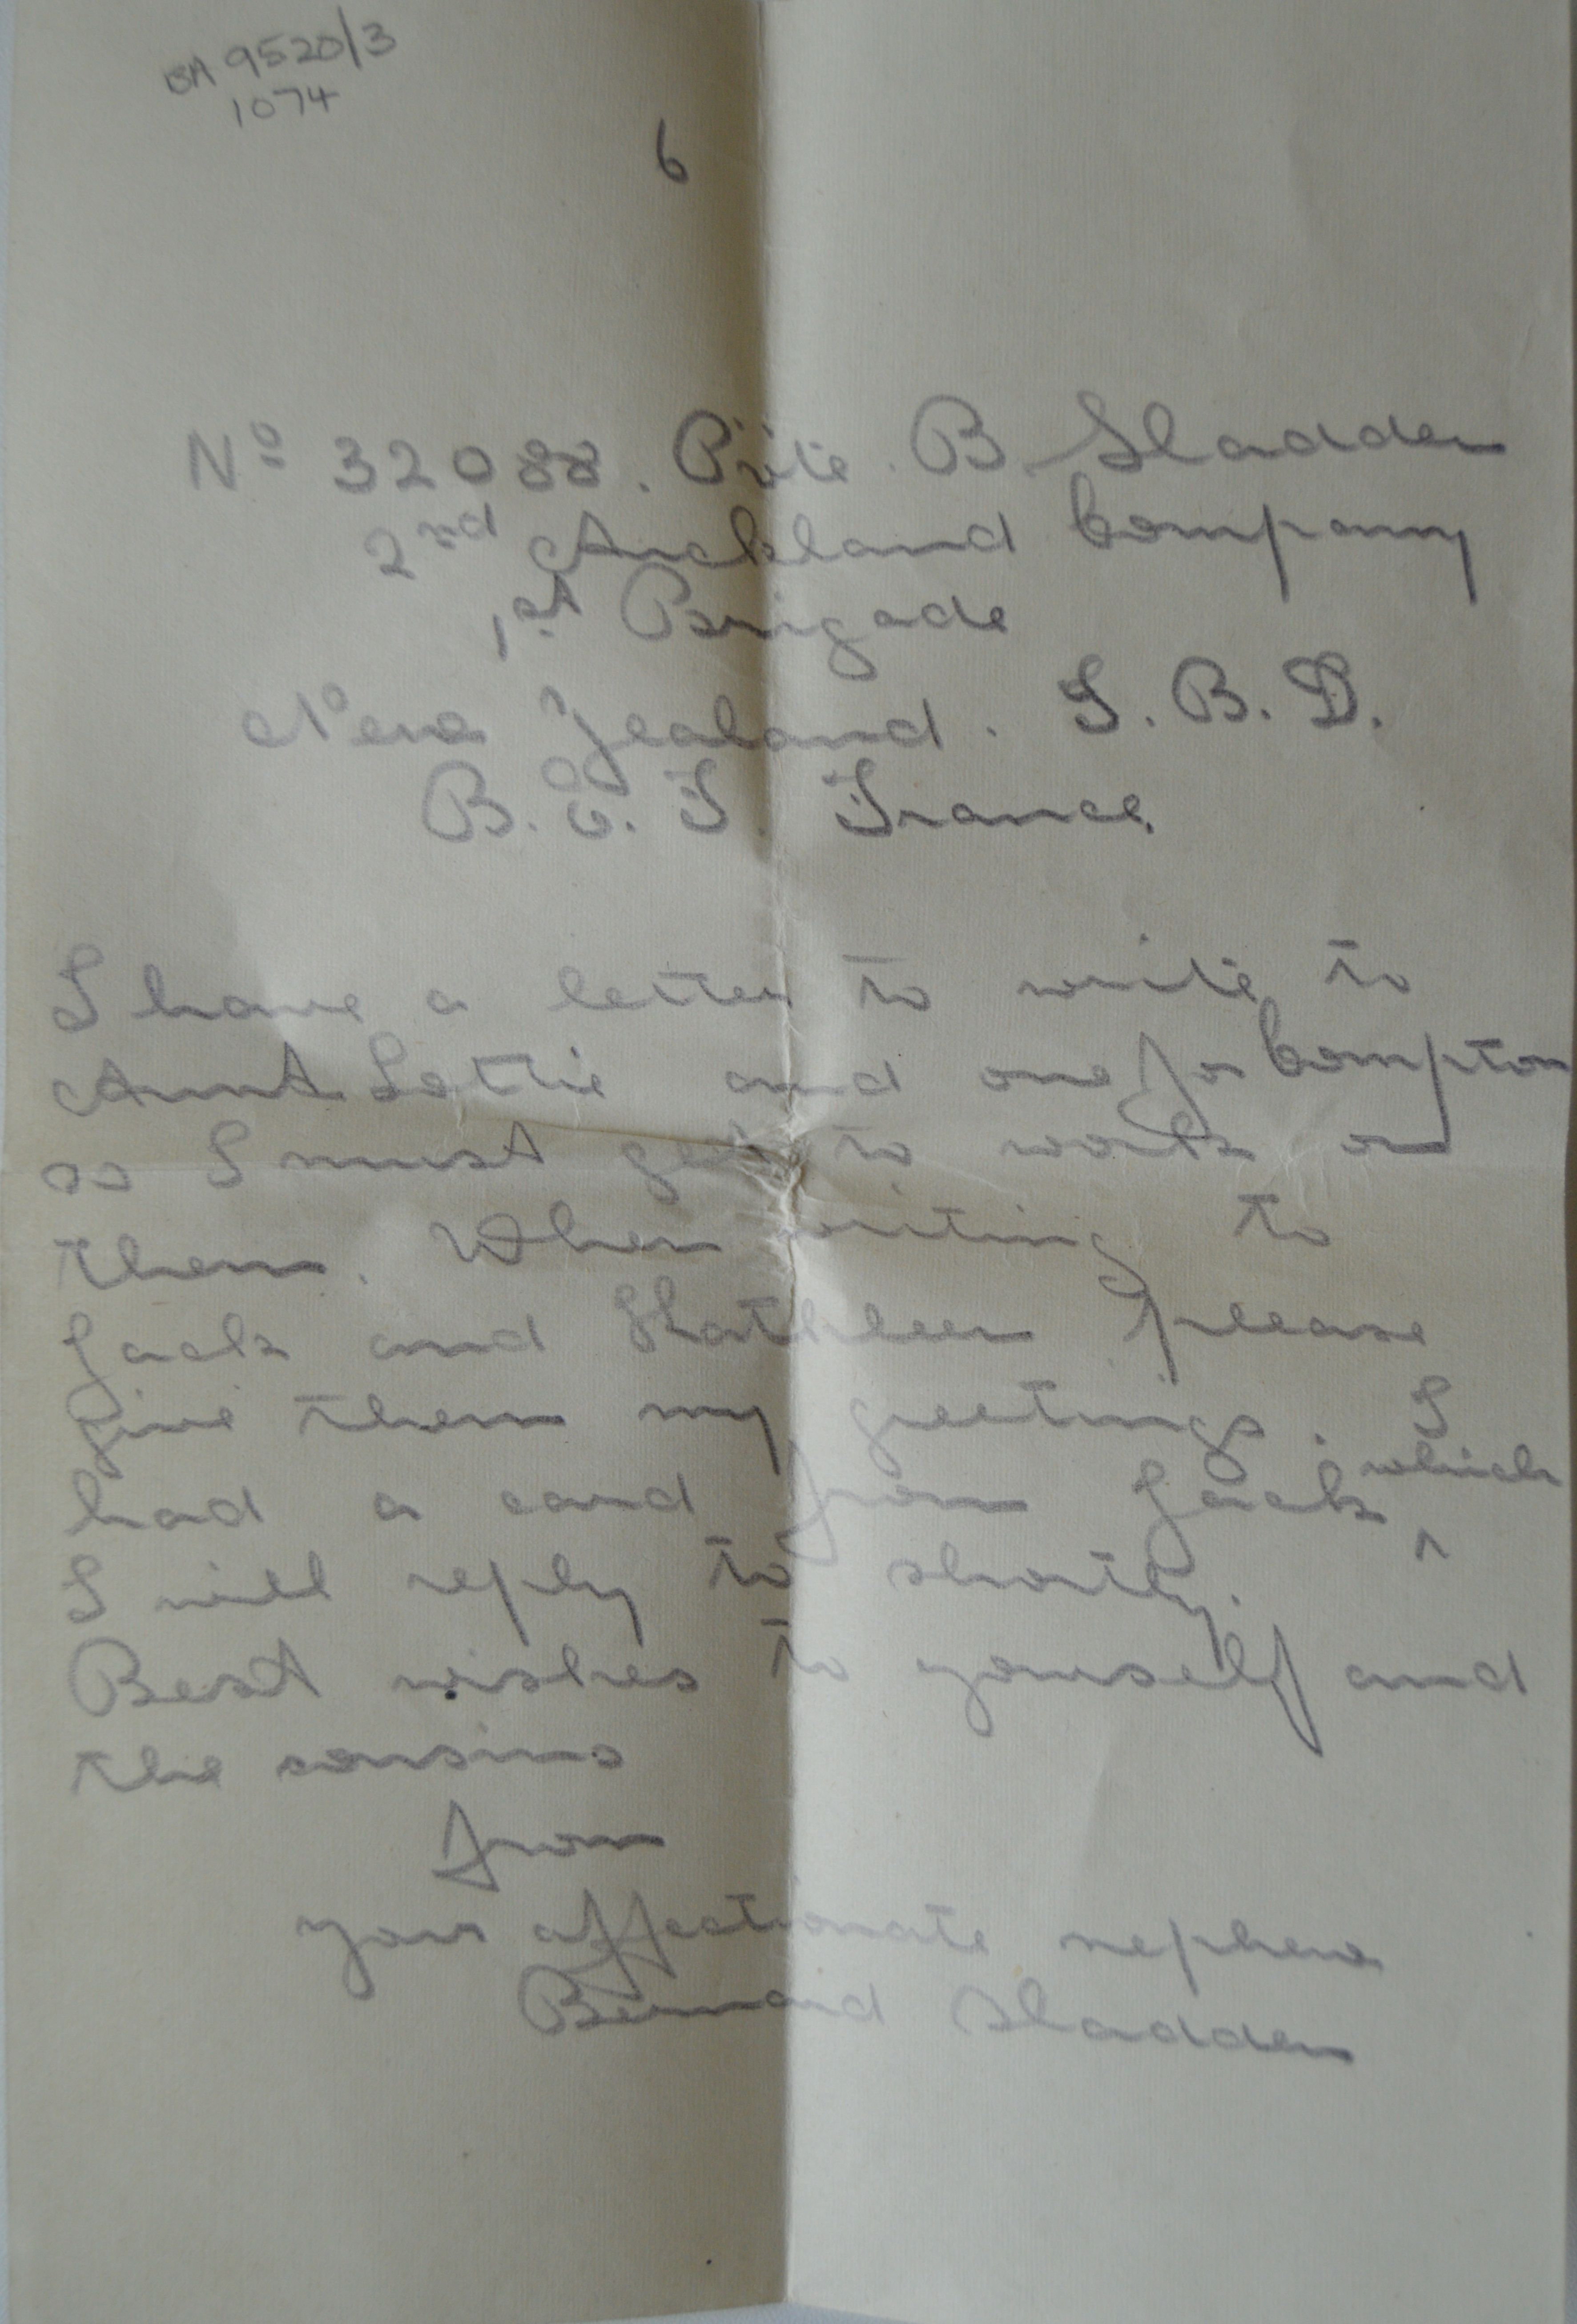 BA 9520/3
1074
6
No 32088. Pvte. B Sladden
2nd Auckland Company
1st Brigade
New Zealand. I. B. D.
B. E. F. France.
I have a letter to write to
Aunt Lottie and one for Compton
so I must get to work on
them. When writing to
Jack and Kathleen please
give them my greetings. I
had a card from Jack which
I will reply to shortly.
Best wishes to yourself and
the cousins
from
your affectionate nephew
Bernard Sladden